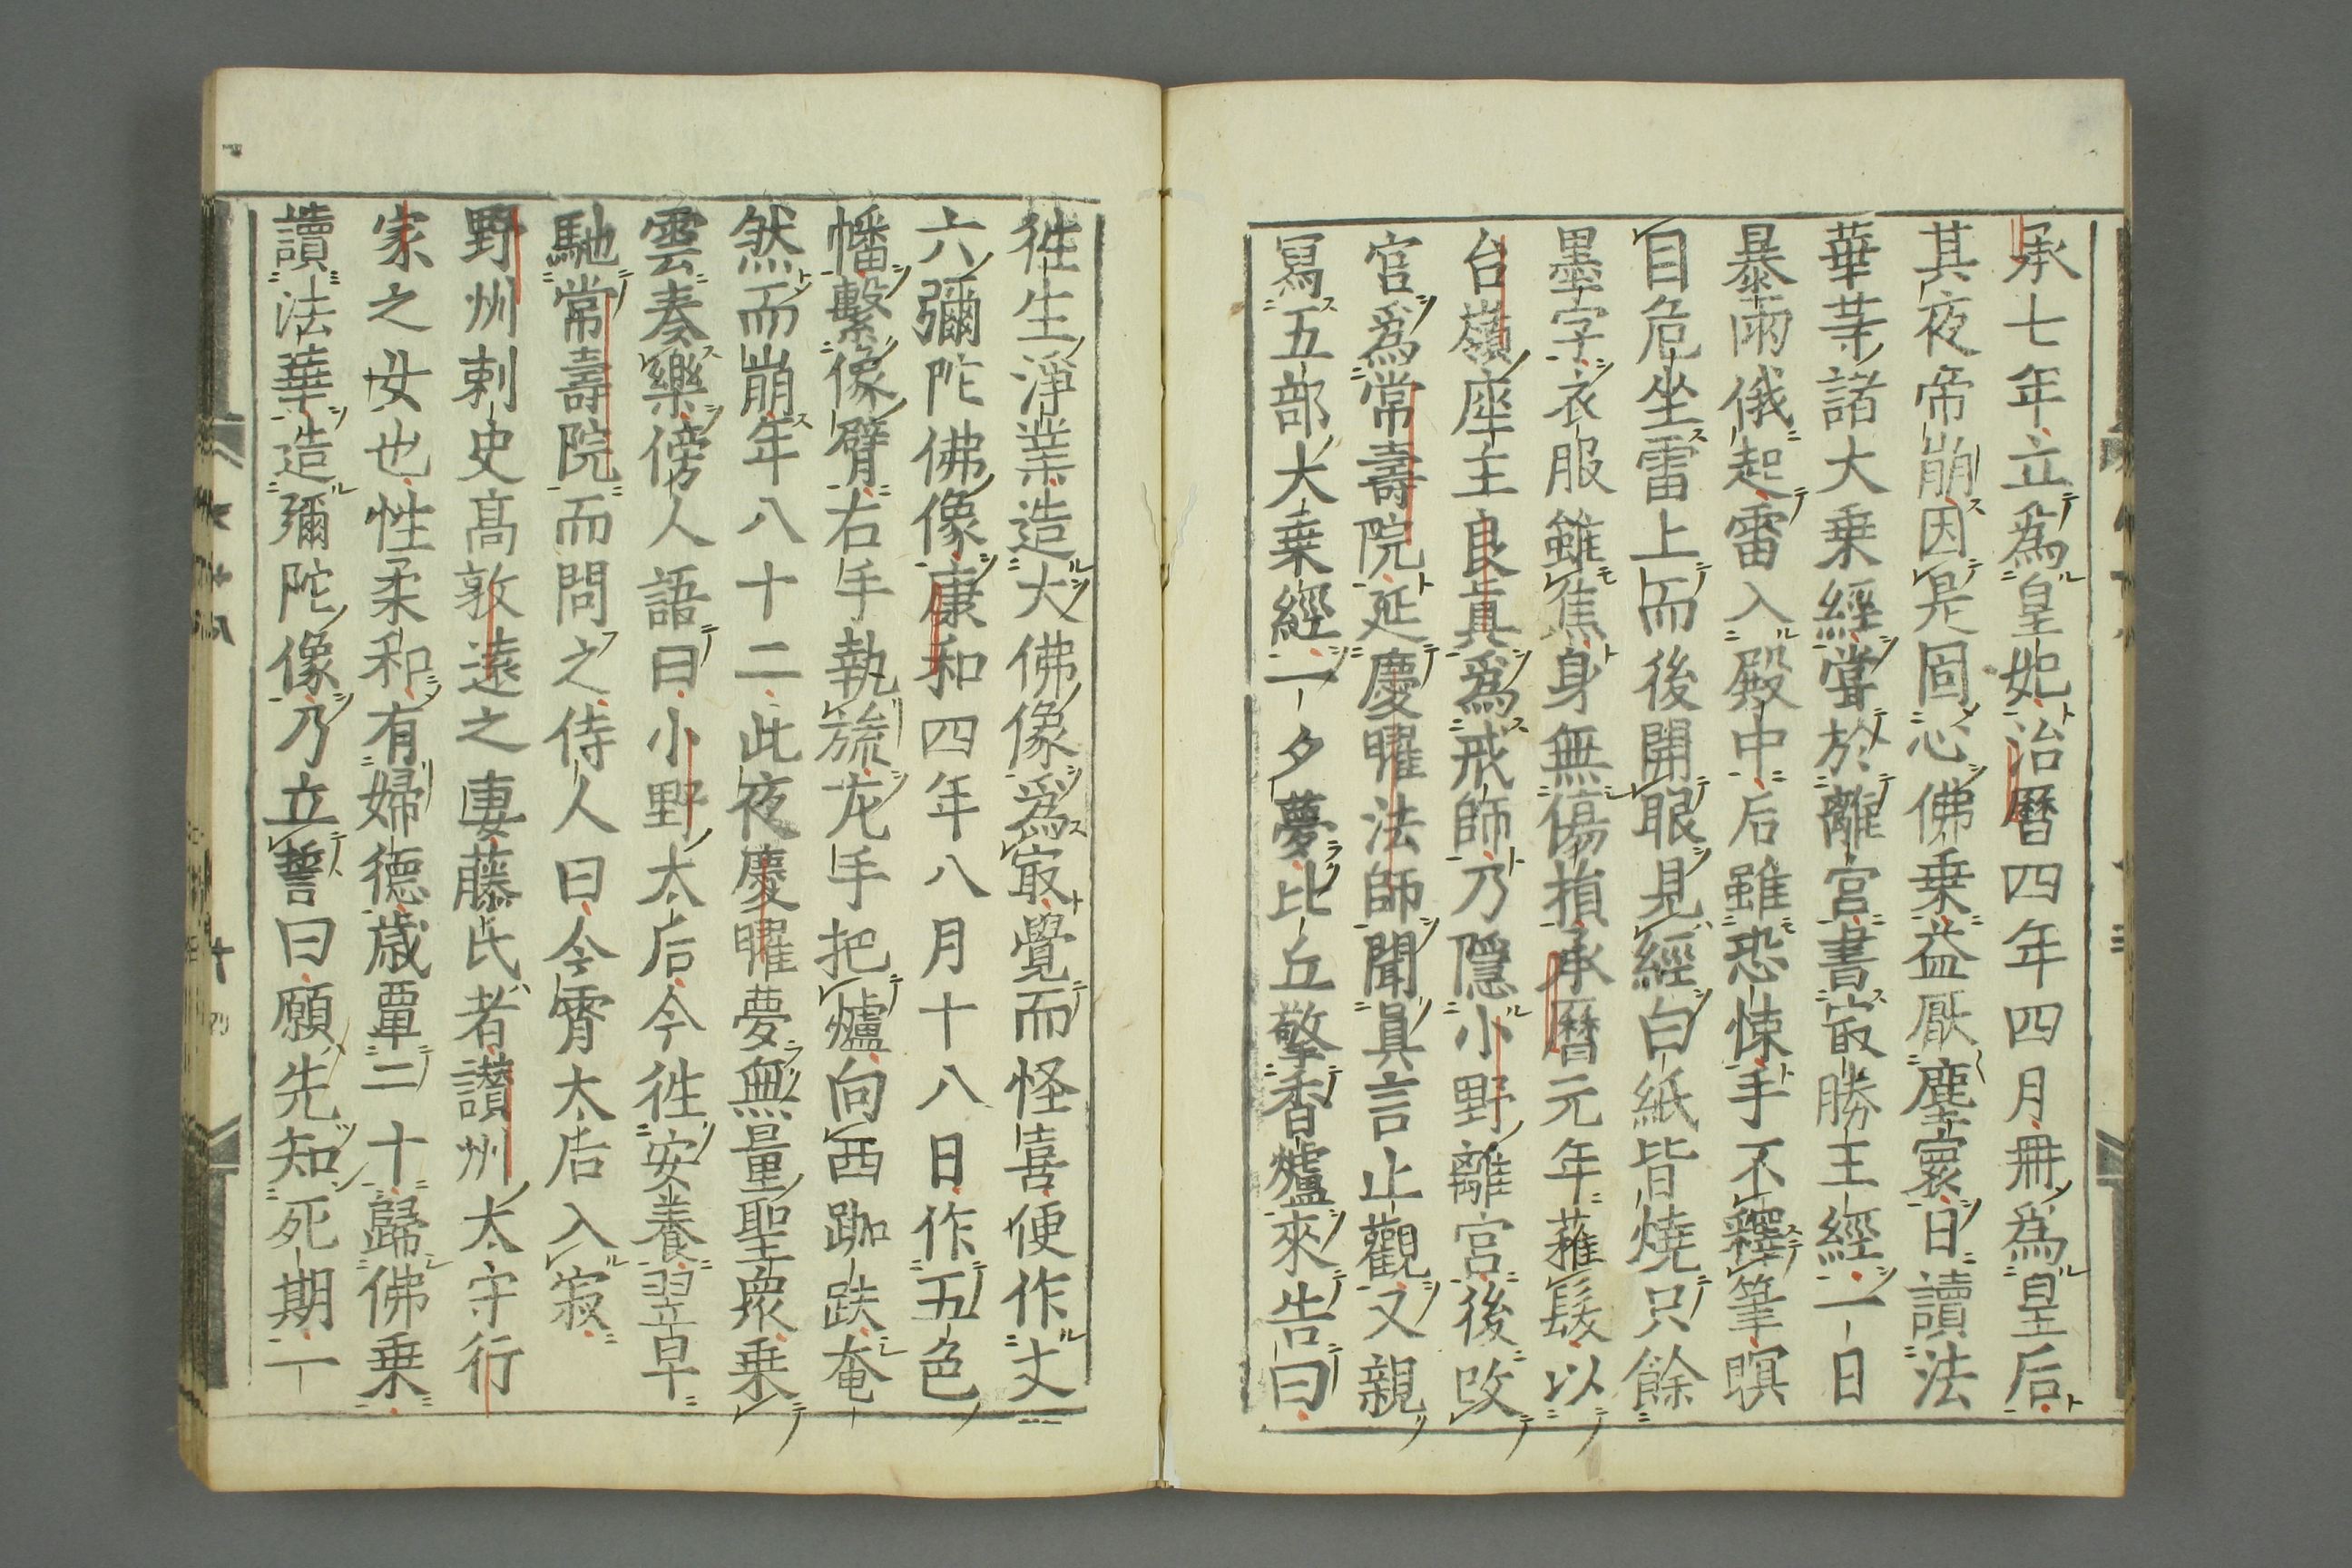 承七年立爲皇妃治曆四年四月冊爲皇后
其夜帝崩因是固心佛乗益厭塵寰日讀法
華等諸大乗經嘗於離宮書寂勝王經一日
暴雨俄起雷入殿中后雖恐悚手不釋筆暝
目危坐雷上而後開眼見經白紙皆燒只餘
墨字衣服雖焦身無傷損承曆元年薙髮以
台嶺座主良眞爲戒師乃隱小野離宮後改
宮爲常壽院延慶曜法師聞眞言止觀又親
冩五部大乗經一夕夢比丘擎香爐來告曰
徃生淨業造大佛像爲寂覺而怪喜便作丈
六彌陀佛像康和四年八月十八日作五色
幡繫像臂右手執旒龙手把爐向西跏趺奄
然而崩年八十二此夜慶曜夢無量聖衆乗
雲奏樂傍人語曰小野太后今徃安養翌早
馳常壽院而問之侍人曰今霄太后入寂
野州刺史高敦遠之妻藤氏者讃州太守行
家之女也性柔和有婦德歳覃二十歸佛乗
讀法華造彌陀像乃立誓曰願先知死期一